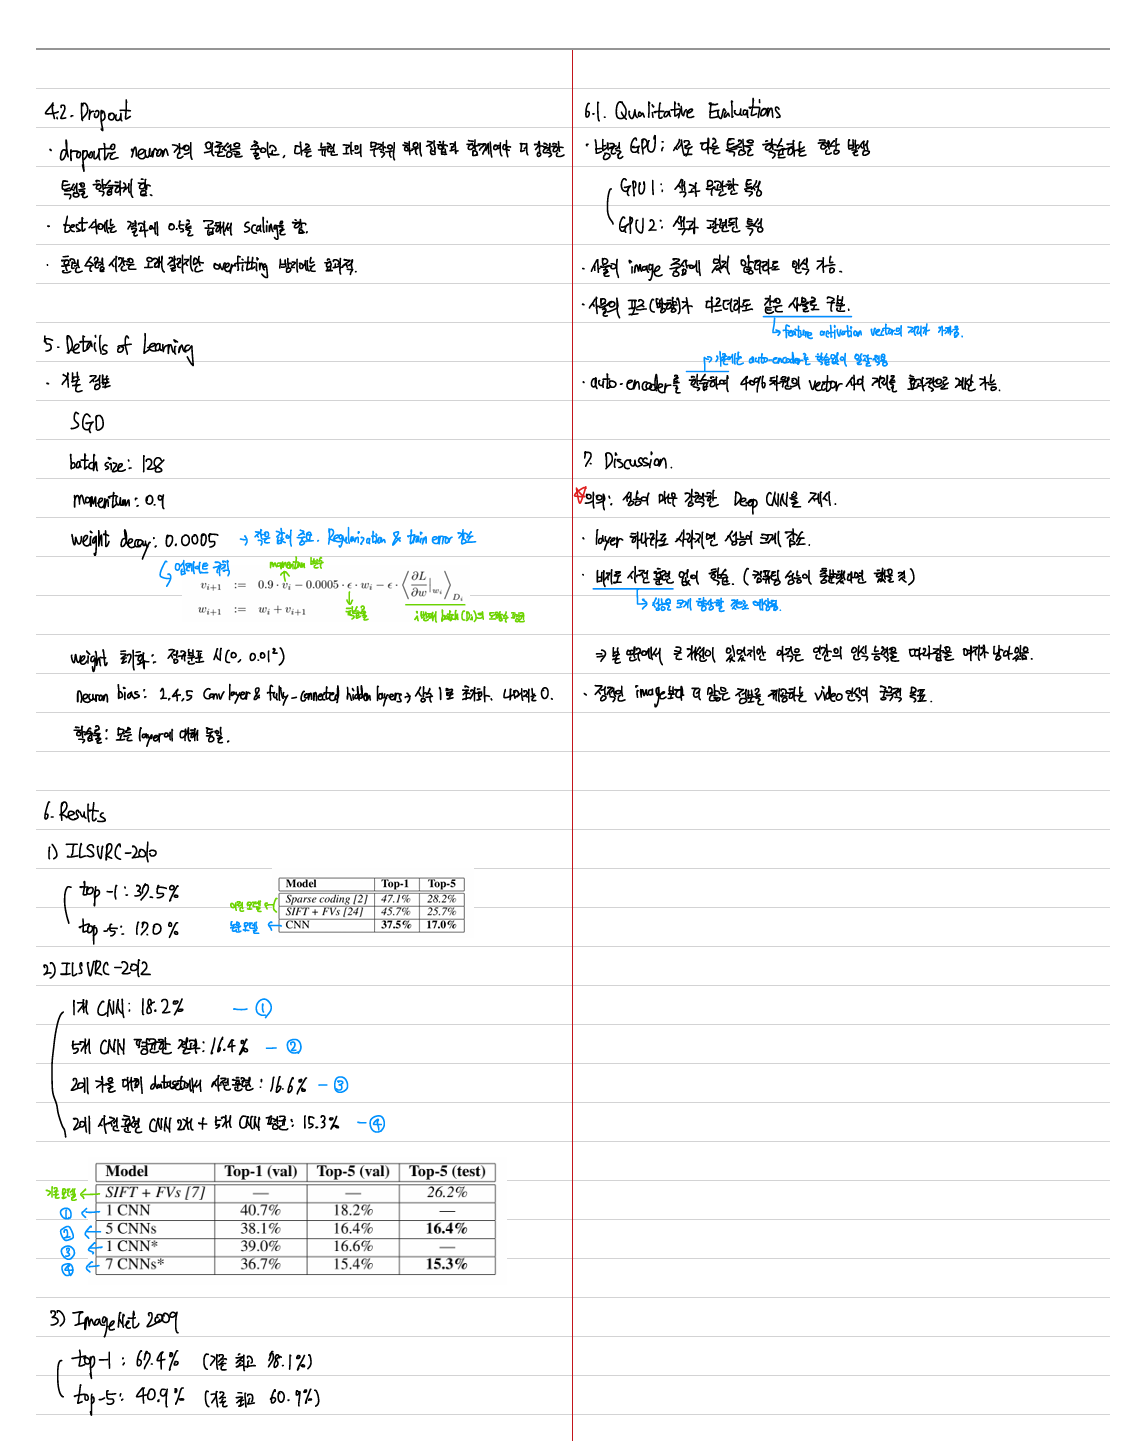 4.2. Dropout
· dropout은 neuron 간의 의존성을 줄이고, 다른 뉴런 과의 무작위 하위 집합과 함께여야 더 강력한
특성을 학습하게 함.
· test시에는 결과에 0.5를 곱해서 scaling을 함.
· 훈련 수렴 시간은 오래 걸리지만 overfitting 방지에는 효과적.
5. Details of Learning
· 기본 정보
SGD
batch size: 128
momentum: 0.9
weight decay: 0.0005 → 작은 값이 중요. Regularization & train error 감소
업데이트 규칙
momentum 변수
v_{i+1} := 0.9 · v_i − 0.0005 · ϵ · w_i − ϵ · ⟨∂L/∂w |_{w_i}⟩_{D_i}
w_{i+1} := w_i + v_{i+1}
학습률
i번째 batch(Di)의 도함수 평균
weight 초기화: 정규분포 N(0, 0.01²)
neuron bias: 2,4,5 Conv layer & fully-connected hidden layers → 상수 1로 초기화. 나머지는 0.
학습률: 모든 layer에 대해 동일.
6. Results
1) ILSVRC-2010
top-1: 37.5%
top-5: 17.0%
Model Top-1 Top-5
이전 모델 ← Sparse coding [2] 47.1% 28.2%
SIFT + FVs [24] 45.7% 25.7%
논문 모델 ← CNN 37.5% 17.0%
2) ILSVRC-2012
1개 CNN: 18.2% — ①
5개 CNN 평균한 결과: 16.4% — ②
2011 가을 대회 dataset에서 사전훈련: 16.6% — ③
2011 사전훈련 CNN 2개 + 5개 CNN 평균: 15.3% — ④
Model Top-1 (val) Top-5 (val) Top-5 (test)
기존 모델 ← SIFT + FVs [7] — — 26.2%
① ← 1 CNN 40.7% 18.2% —
② ← 5 CNNs 38.1% 16.4% 16.4%
③ ← 1 CNN* 39.0% 16.6% —
④ ← 7 CNNs* 36.7% 15.4% 15.3%
3) ImageNet 2009
top-1: 67.4% (기존 최고 78.1%)
top-5: 40.9% (기존 최고 60.9%)
6.1. Qualitative Evaluations
· 병렬 GPU; 서로 다른 특징을 학습하는 현상 발생
GPU 1: 색과 무관한 특성
GPU 2: 색과 관련된 특성
· 사물이 image 중심에 있지 않더라도 인식 가능.
· 사물의 포즈(방향)가 다르더라도 같은 사물로 구분.
↳ feature activation vector의 거리가 가까움.
→ 기존에는 auto-encoder를 학습없이 일괄 적용
· auto-encoder를 학습하여 4096 차원의 vector 사이 거리를 효과적으로 계산 가능.
7. Discussion.
☆의의: 성능이 매우 강력한 Deep CNN을 제시.
· layer 하나라도 사라지면 성능이 크게 감소.
· 비지도 사전 훈련 없이 학습. (컴퓨팅 성능이 충분했다면 했을 것)
↳ 성능은 크게 향상할 것으로 예상됨.
⇒ 본 연구에서 큰 개선이 있었지만 아직은 인간의 인식 능력을 따라잡을 여지가 남아있음.
· 정적인 image보다 더 많은 정보를 제공하는 video 인식이 궁극적 목표.